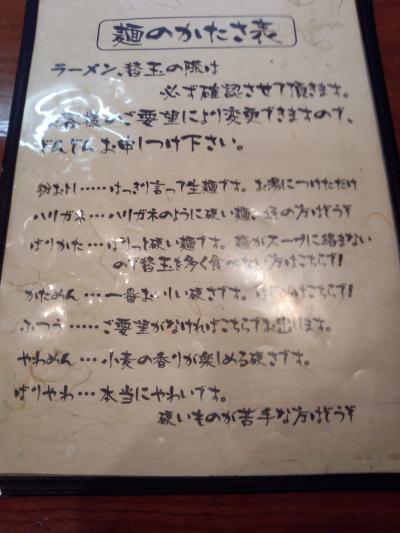 麺のかたさ表
ラーメン、替玉の際は
必ず確認させて頂きます。
お客様のご要望により変更できますので、
どんどんお申しつけ下さい。
粉おとし……はっきり言って生麺です。お湯につけただけ
ハリガネ……ハリガネのように硬い麺、通の方はどうぞ
ばりかた…ばりっと硬い麺です。麺がスープに絡まない
ので替玉を多く食べたい方はこちらで!
かためん…一番おいしい硬さです。はこちらで!
ふつう……ご要望がなければこちらでお出しします。
やわめん…小麦の香りが楽しめる硬さです。
ばりやわ…本当にやわいです。
硬いものが苦手な方はどうぞ